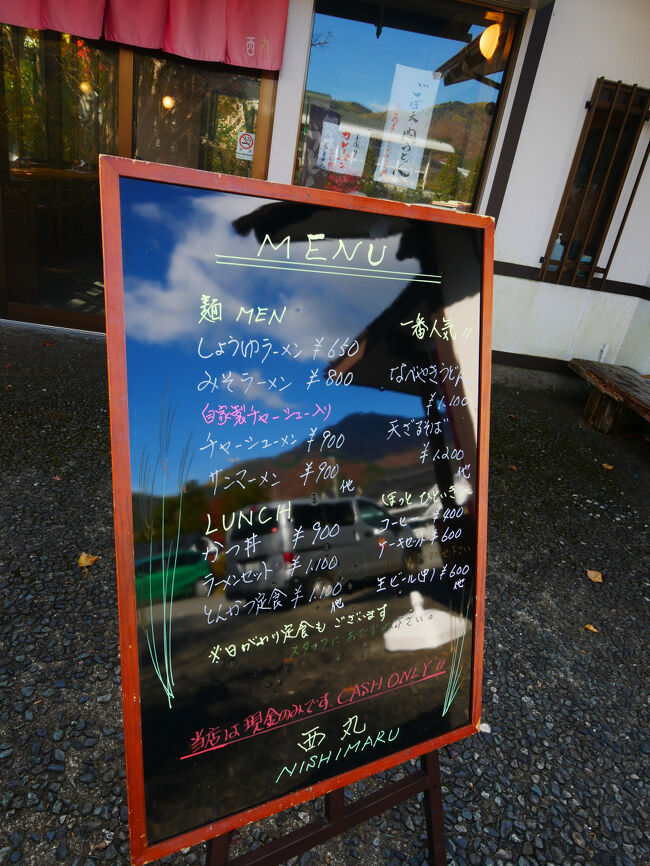 西丸
MENU
麺 MEN
しょうゆラーメン ¥650
みそラーメン ¥800
自家製チャーシュー入り
チャーシューメン ¥900
サンマーメン ¥900
他
LUNCH
かつ丼 ¥900
ラーメンセット ¥1,100
とんかつ定食 ¥1,100
他
一番人気!!
なべやきうどん
¥1,100
天ざるそば
¥1,200
他
ほっと ひといき
コーヒー ¥400
ケーキセット ¥600
生ビール(中) ¥600
他
※日がわり定食も ございます
スタッフに おたずね下さい。
当店は現金のみです CASH ONLY!!
西丸
NISHIMARU